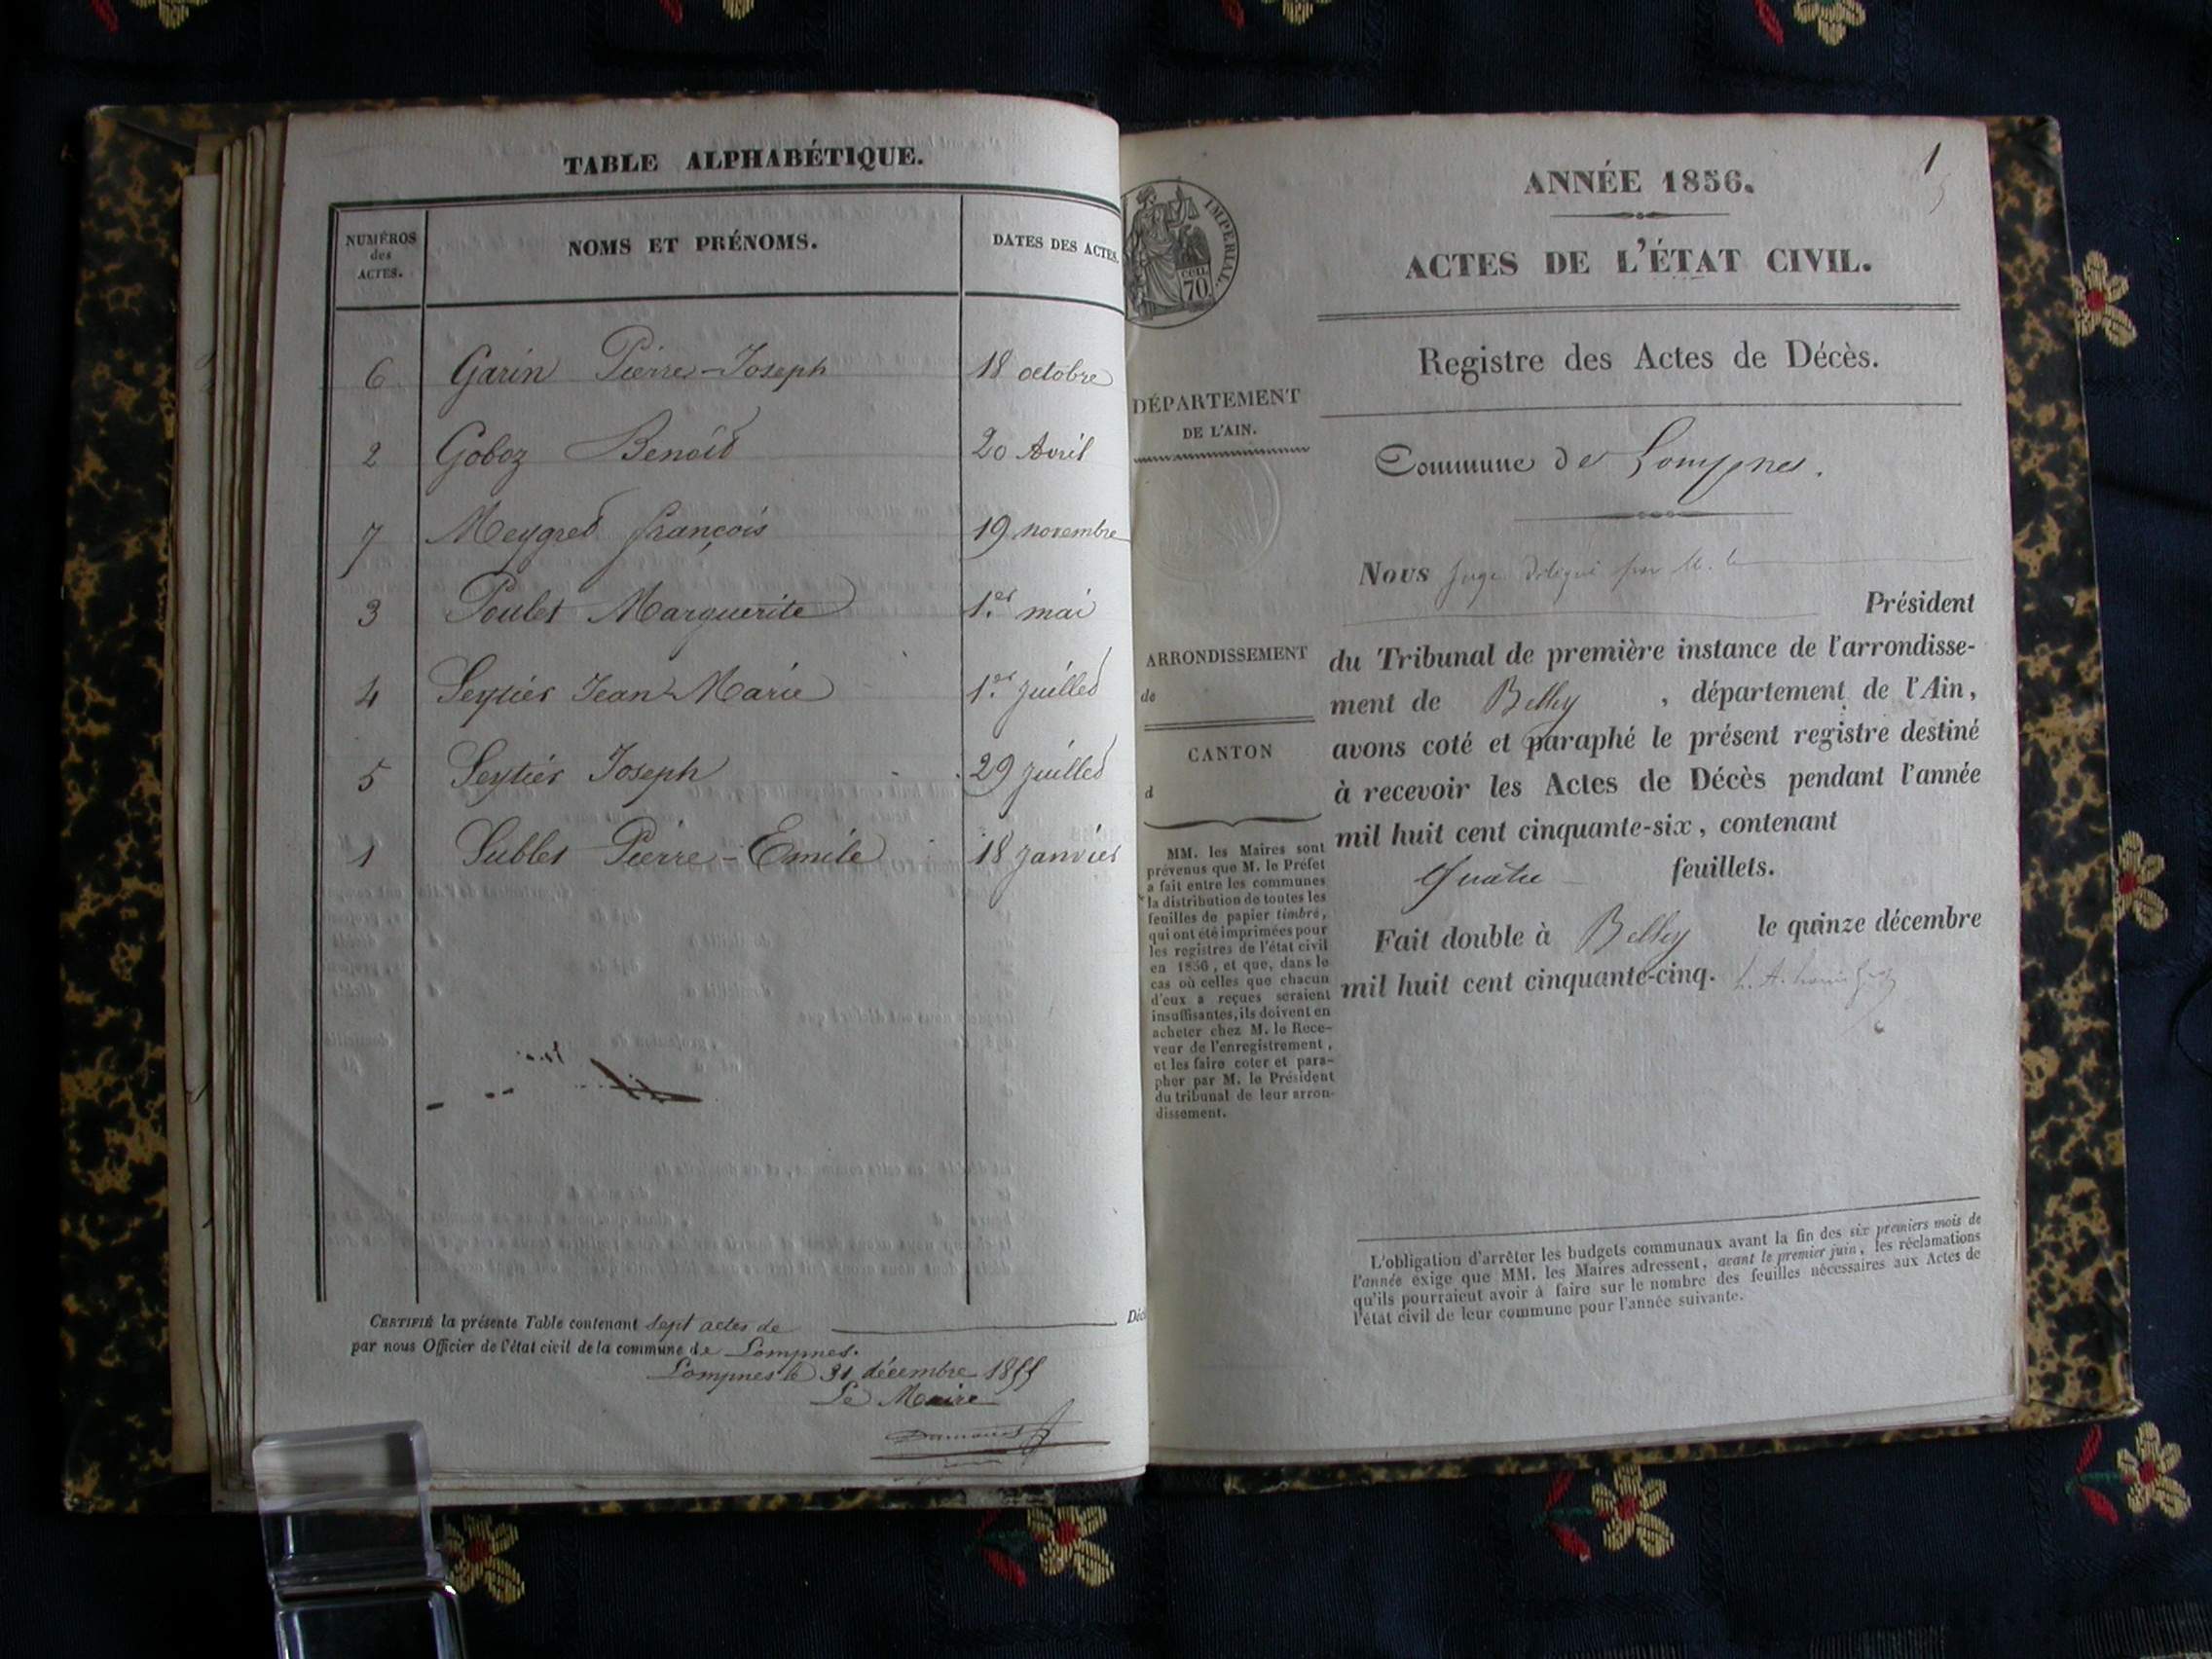 TABLE ALPHABÉTIQUE.
NUMÉROS
des
ACTES.
NOMS ET PRÉNOMS.
DATES DES ACTES.
6 Garin Pierre-Joseph 18 octobre
2 Goboz Benoit 20 Avril
7 Meygret françois 19 novembre
3 Poulet Marguerite 1.er mai
4 Seytier Jean Marie 1.er juillet
5 Seytier Joseph 29 juillet
1 Sublet Pierre-Emile 18 janvier
CERTIFIÉ la présente Table contenant sept actes de Déc
par nous Officier de l'état civil de la commune de Lompnes.
Lompnes le 31 décembre 1855
Le Maire
1
ANNÉE 1856.
ACTES DE L'ÉTAT CIVIL.
IMPERIAL.
CEN.
70
Registre des Actes de Décès.
DÉPARTEMENT
DE L'AIN.
Commune de Lompnes.
Nous juge délégué par M. le
Président
ARRONDISSEMENT
de
CANTON
d
du Tribunal de première instance de l'arrondisse-
ment de Belley , département de l'Ain,
avons coté et paraphé le présent registre destiné
à recevoir les Actes de Décès pendant l'année
mil huit cent cinquante-six, contenant
quatre feuillets.
Fait double à Belley le quinze décembre
mil huit cent cinquante-cinq.
MM. les Maires sont
prévenus que M. le Préfet
a fait entre les communes
la distribution de toutes les
feuilles de papier timbré,
qui ont été imprimées pour
les registres de l'état civil
en 1856, et que, dans le
cas où celles que chacun
d'eux a reçues seraient
insuffisantes, ils doivent en
acheter chez M. le Rece-
veur de l'enregistrement,
et les faire coter et para-
pher par M. le Président
du tribunal de leur arron-
dissement.
L'obligation d'arrêter les budgets communaux avant la fin des six premiers mois de
l'année exige que MM. les Maires adressent, avant le premier juin, les réclamations
qu'ils pourraient avoir à faire sur le nombre des feuilles nécessaires aux Actes de
l'état civil de leur commune pour l'année suivante.